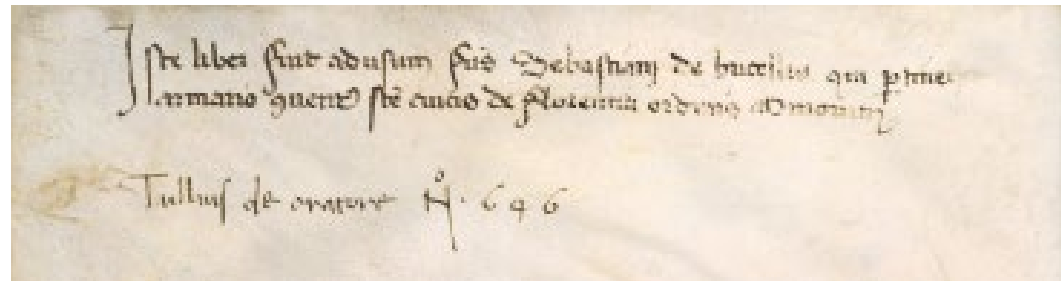 Iste liber fuit ad usum fr̄is Sebastiani de bucellis qui ꝑtine
armario ꝯuent⁹ sc̄e crucis de florentia ordinis minorum
Tullius de oratore Nº. 646